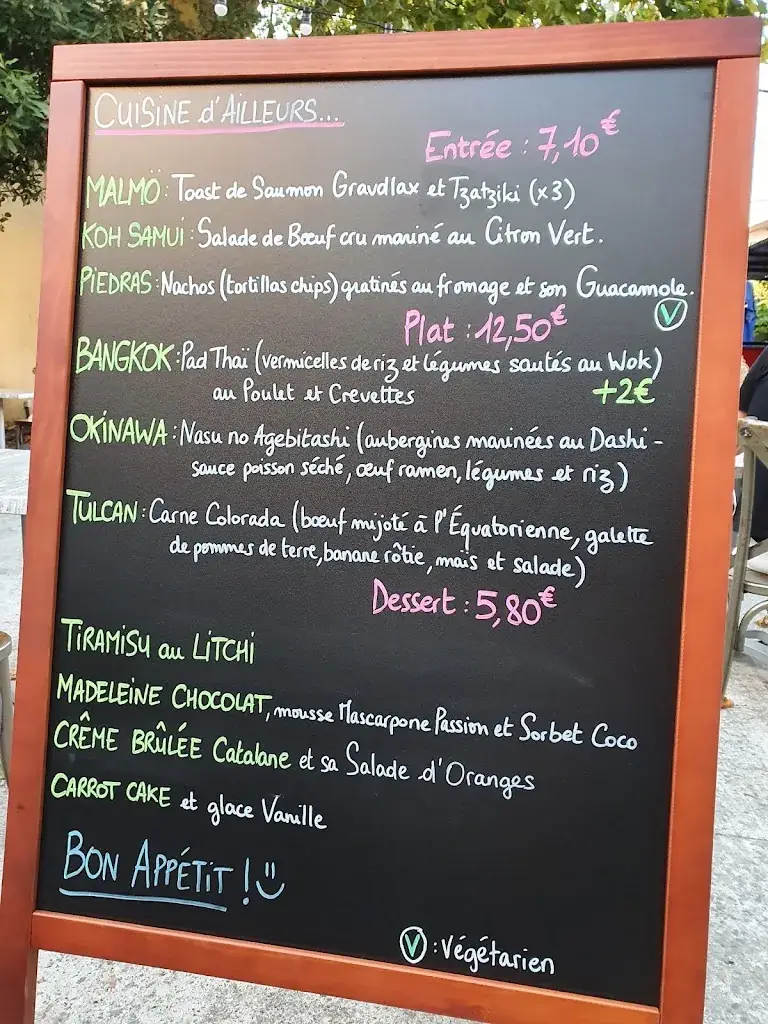 CUISINE d'AILLEURS...
Entrée : 7,10€
MALMÖ : Toast de Saumon Gravdlax et Tzatziki (x3)
KOH SAMUI : Salade de Bœuf cru mariné au Citron Vert.
PIEDRAS : Nachos (tortillas chips) gratinés au fromage et son Guacamole.
V
Plat : 12,50€
BANGKOK : Pad Thaï (vermicelles de riz et légumes sautés au Wok)
au Poulet et Crevettes +2€
OKINAWA : Nasu no Agebitashi (aubergines marinées au Dashi -
sauce poisson séché, œuf ramen, légumes et riz)
TULCAN : Carne Colorada (bœuf mijoté à l'Équatorienne, galette
de pommes de terre, banane rôtie, maïs et salade)
Dessert : 5,80€
TIRAMISU au LITCHI
MADELEINE CHOCOLAT, mousse Mascarpone Passion et Sorbet Coco
CRÊME BRÛLÉE Catalane et sa Salade d'Oranges
CARROT CAKE et glace Vanille
BON APPÉTIT !
V : Végétarien